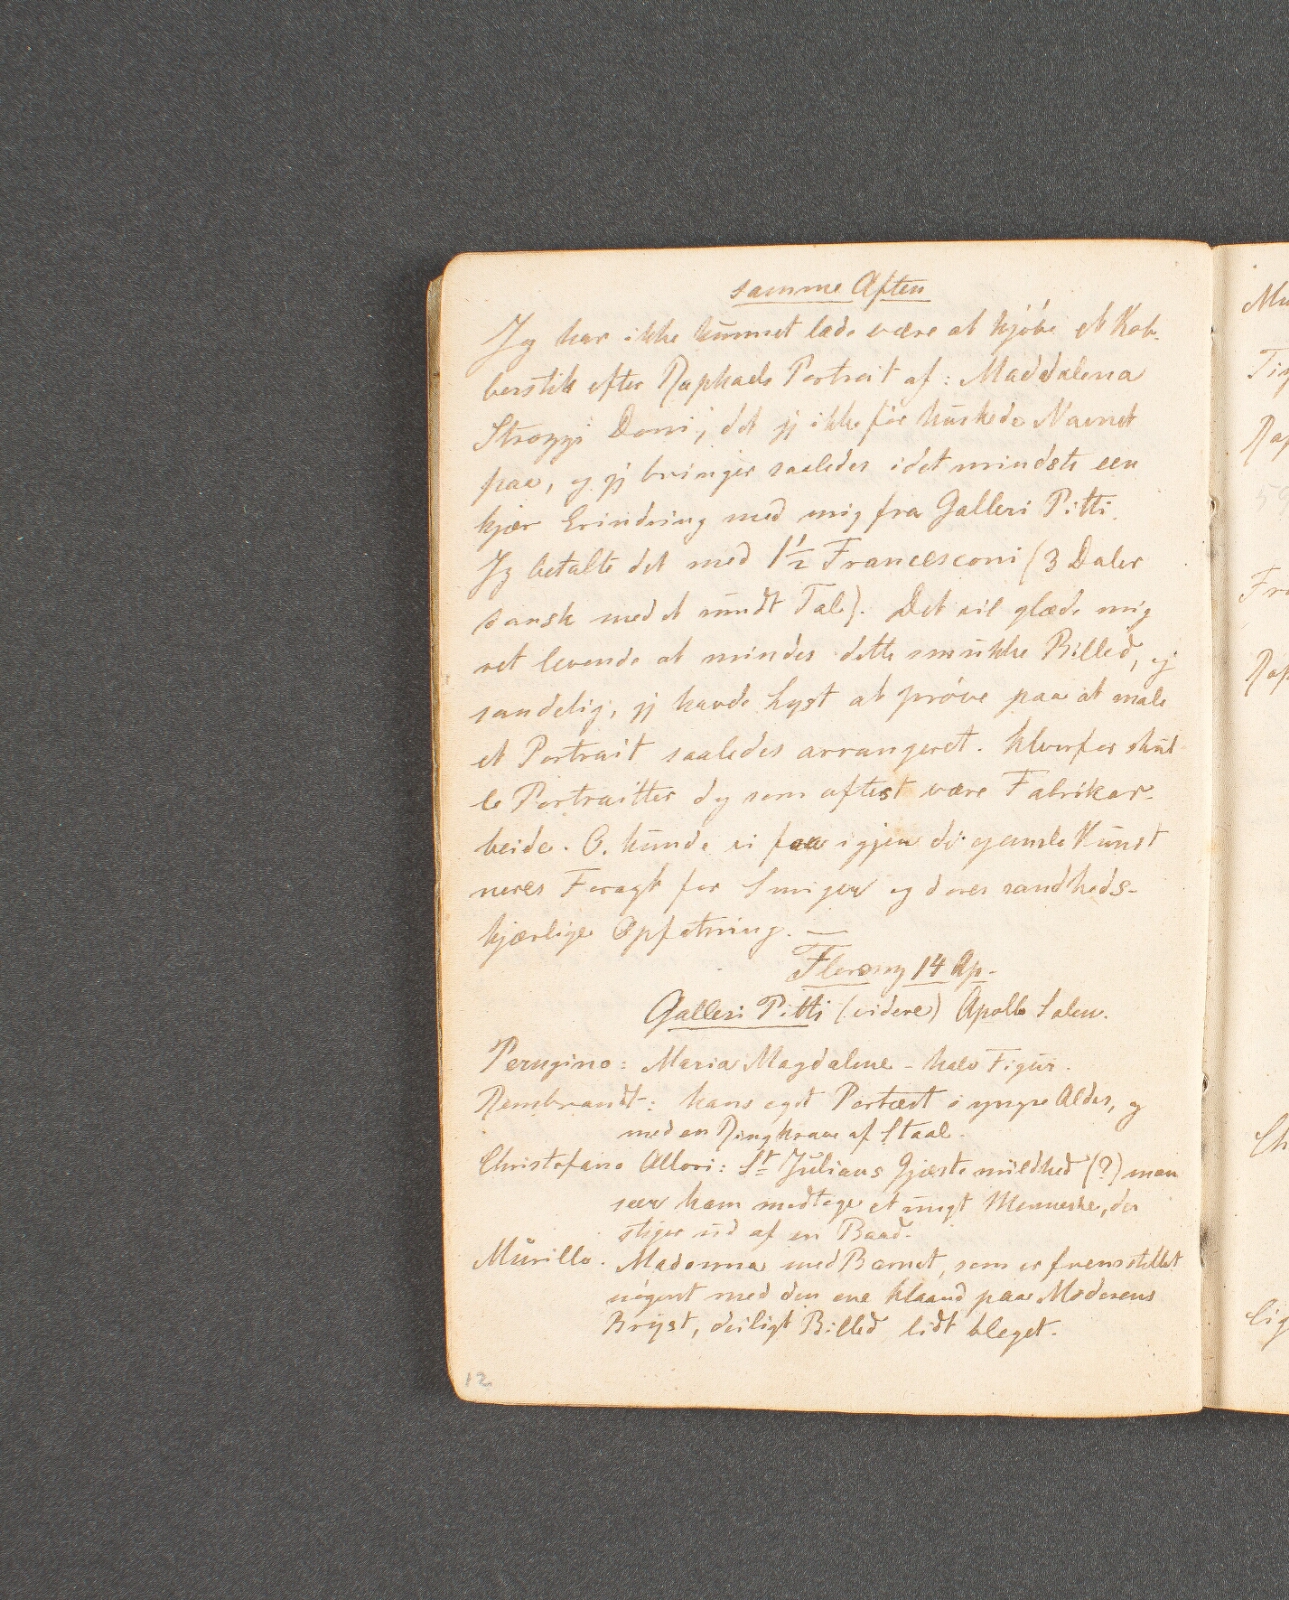 samme Aften
Jeg har ikke kunnet lade være at kjöbe et Kob-
berstik efter Raphaels Portrait af: Maddalena
Strozzi Doni; det jeg ikke før huskede Navnet
paa, og jeg bringer saaledes idet mindste een
kjær Erindring med mig fra Galleri Pitti.
Jeg betalte det med 1 1/2 Francesconi (3 Daler
dansk med et rundt Tal). Det vil glæde mig
ret levende at mindes dette smukke Billed, og
sandelig, jeg havde Lyst at pröve paa at male
et Portrait saaledes arrangeret. Hvorfor skul
le Portraitter dog som oftest være Fabrikar-
beide. O, kunde vi faa igjen de gamle Kunst
neres Foragt for Smiger og deres sandheds-
kjærlige Opfatning. —
Florenz 14 Ap-
Galleri Pitti (videre) Apollo Salen.
Perugino: Maria Magdalene - halv Figur.
Rembrandt: hans eget Portræt i yngre Alder, og
med en Ringkrave af Staal.
Christofano Allori: St Julians Gjæstemildhed (?) man
seer ham modtage et ungt Menneske, der
stiger ud af en Baad.
Murillo. Madonna med Barnet, som er fremstillet
nøgent med den ene Haand paa Moderens
Bryst, deiligt Billed lidt bleget.
12
Mu
Ra
59
Fr
Rap
Ch